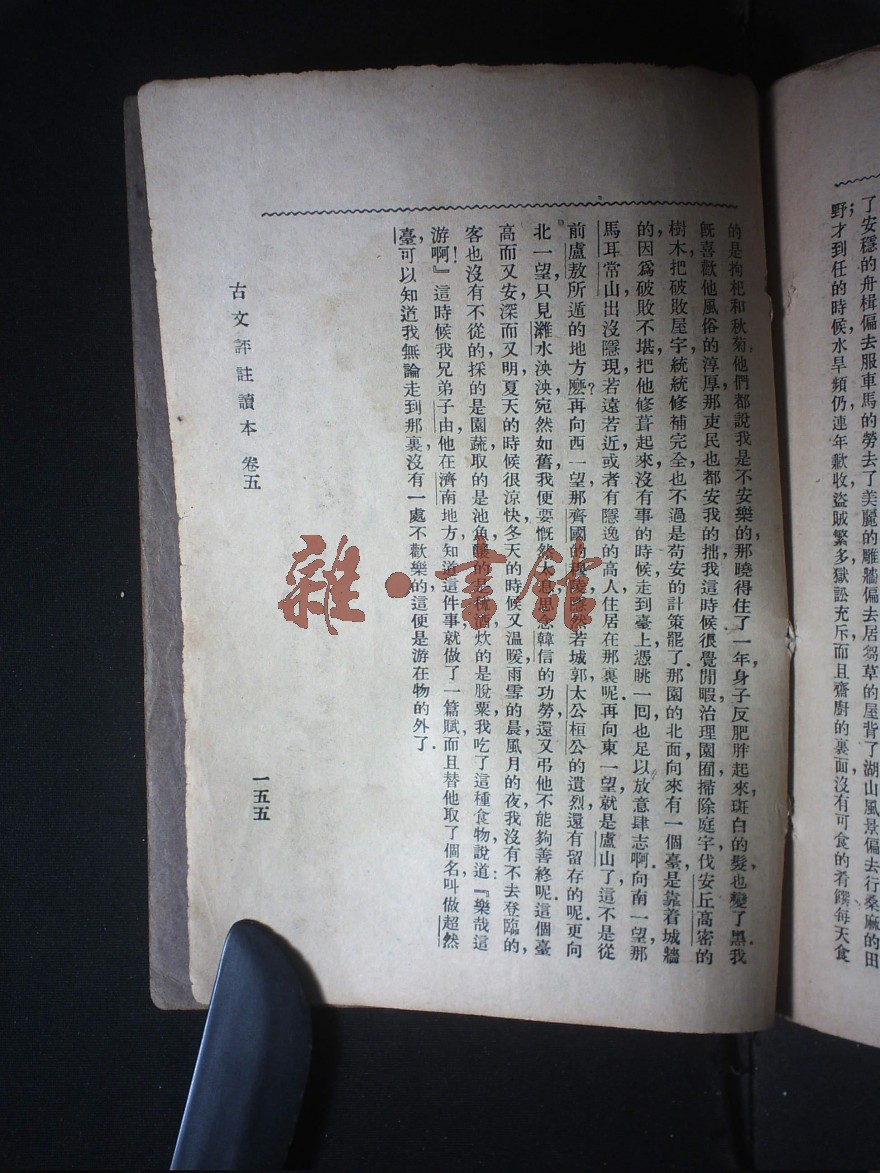 了安穩的舟楫，偏去服車馬的勞，去了美麗的雕牆，偏去居芻草的屋，背了湖山風景，偏去行桑麻的田
野；才到任的時候，水旱頻仍，連年歉收，盜賊繁多，獄訟充斥，而且齋廚的裏面，沒有可食的肴饌，每天食
的是枸杞和秋菊，他們都說我是不安樂的，那曉得住了一年，身子反肥胖起來，斑白的髮，也變了黑．我
旣喜歡他風俗的淳厚，那吏民也都安我的拙，我這時候很覺閒暇，治理園囿，掃除庭宇，伐安丘高密的
樹木，把破敗屋宇，統統修補完全，也不過是苟安的計策罷了．那園的北面，向來有一個臺，是靠着城牆
的，因爲破敗不堪，把他修葺起來，沒有事的時候，走到臺上，憑眺一囘，也足以放意肆志啊．向南一望，那
馬耳常山，出沒隱現，若遠若近，或者有隱逸的高人，住居在那裏呢．再向東一望，就是盧山了，這不是從
前盧敖所遁的地方麽？再向西一望，那齊國的穆陵，隱然若城郭，太公桓公的遺烈，還有留存的呢．更向
北一望，只見濰水泱泱，宛然如舊，我便要慨然大息，思念韓信的功勞，還又弔他不能夠善終呢．這個臺
高而又安，深而又明，夏天的時候很涼快，冬天的時候又温暖，雨雪的晨，風月的夜，我沒有不去登臨的，
客也沒有不從的，採的是園蔬，取的是池魚，釀的是秫酒，炊的是脫粟，我吃了這種食物，說道：『樂哉這
游啊！』這時候我兄弟子由，他在濟南地方，知道這件事，就做了一篇賦，而且替他取了個名，叫做超然
臺，可以知道我無論走到那裏，沒有一處不歡樂的，這便是游在物的外了．
古文評註讀本　卷五
一五五
雜·書館